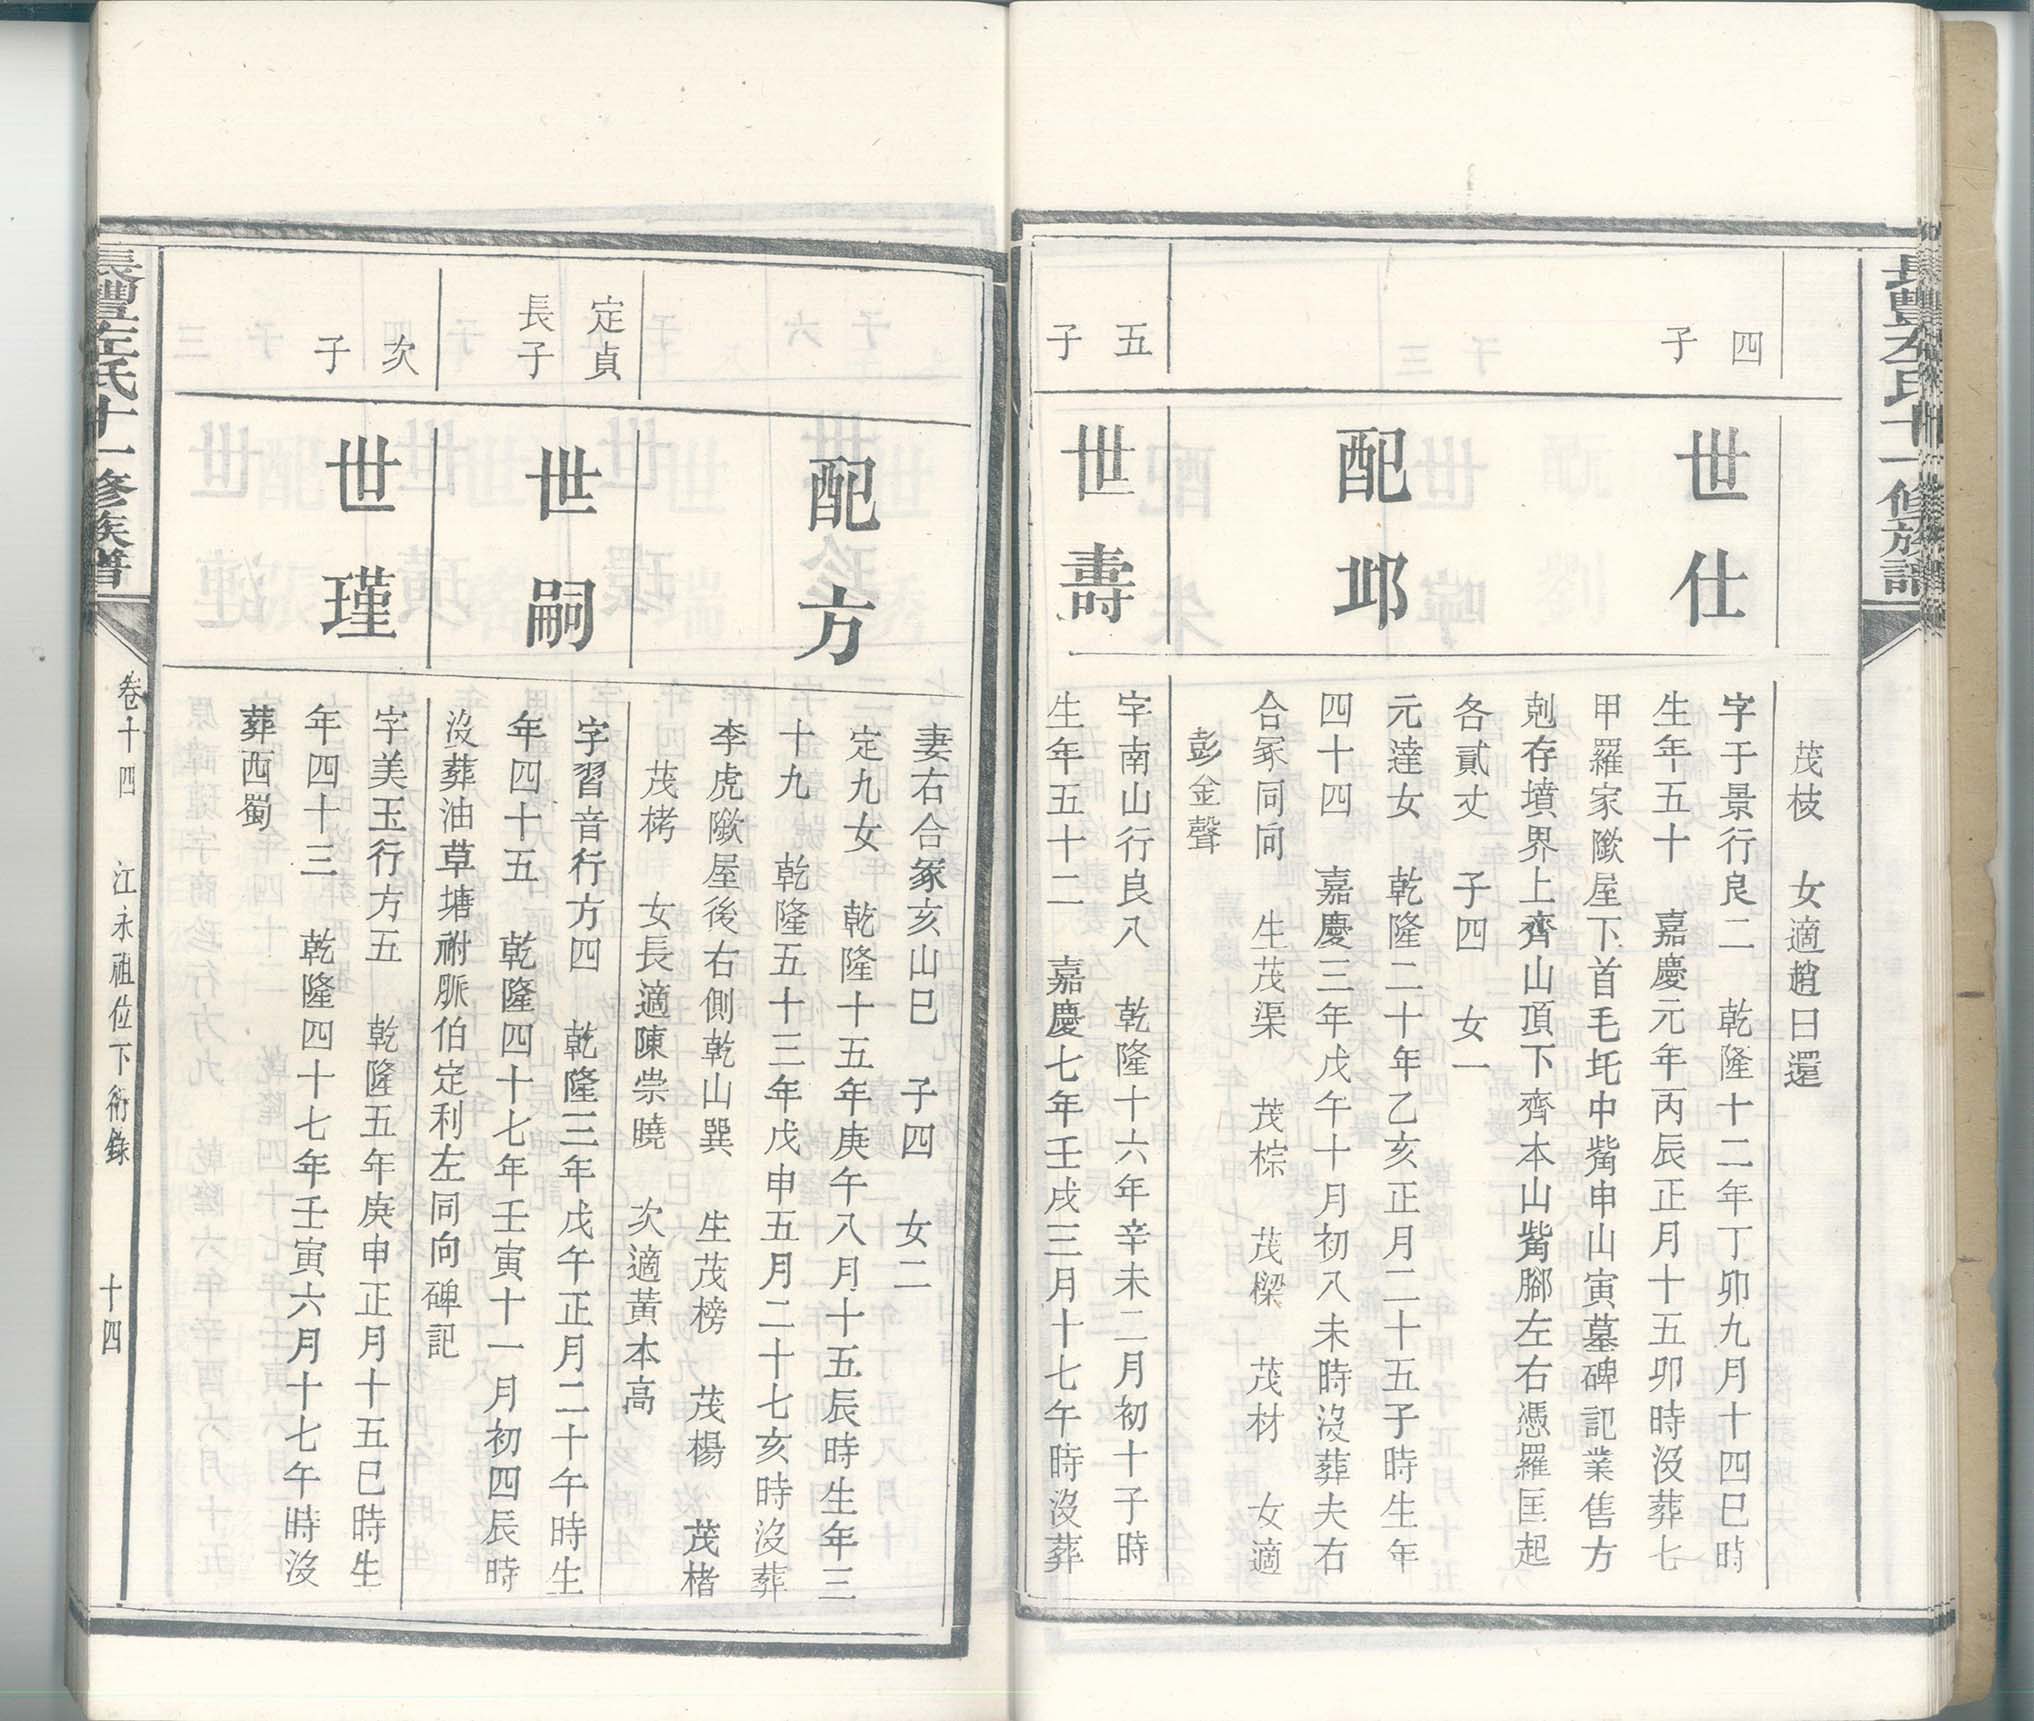 長豐左氏十一修族譜
茂枝　女適趙日還
四子
世仕
字于景行良二　乾隆十二年丁卯九月十四巳時
生年五十　嘉慶元年丙辰正月十五卯時沒葬七
甲羅家隞屋下首毛坉中觜申山寅墓碑記業售方
剋存墳界上齊山頂下齊本山觜腳左右憑羅匡起
各貳丈　子四　女一
配邛
元達女　乾隆二十年乙亥正月二十五子時生年
四十四　嘉慶三年戊午十月初八未時沒葬夫右
合冢同向　生茂渠　茂棕　茂樑　茂材　女適
彭金聲
五子
世壽
字南山行良八　乾隆十六年辛未二月初十子時
生年五十二　嘉慶七年壬戌三月十七午時沒葬
妻右合冢亥山巳　子四　女二
配方
定九女　乾隆十五年庚午八月十五辰時生年三
十九　乾隆五十三年戊申五月二十七亥時沒葬
李虎隞屋後右側乾山巽　生茂榜　茂楊　茂楮
茂栲　女長適陳崇曉　次適黃本高
定貞長子
世嗣
字習音行方四　乾隆三年戊午正月二十午時生
年四十五　乾隆四十七年壬寅十一月初四辰時
沒葬油草塘祔脈伯定利左同向碑記
次子
世瑾
字美玉行方五　乾隆五年庚申正月十五巳時生
年四十三　乾隆四十七年壬寅六月十七午時沒
葬西蜀
長豐左氏十一修族譜
卷十四　江永祖位下衍錄　十四